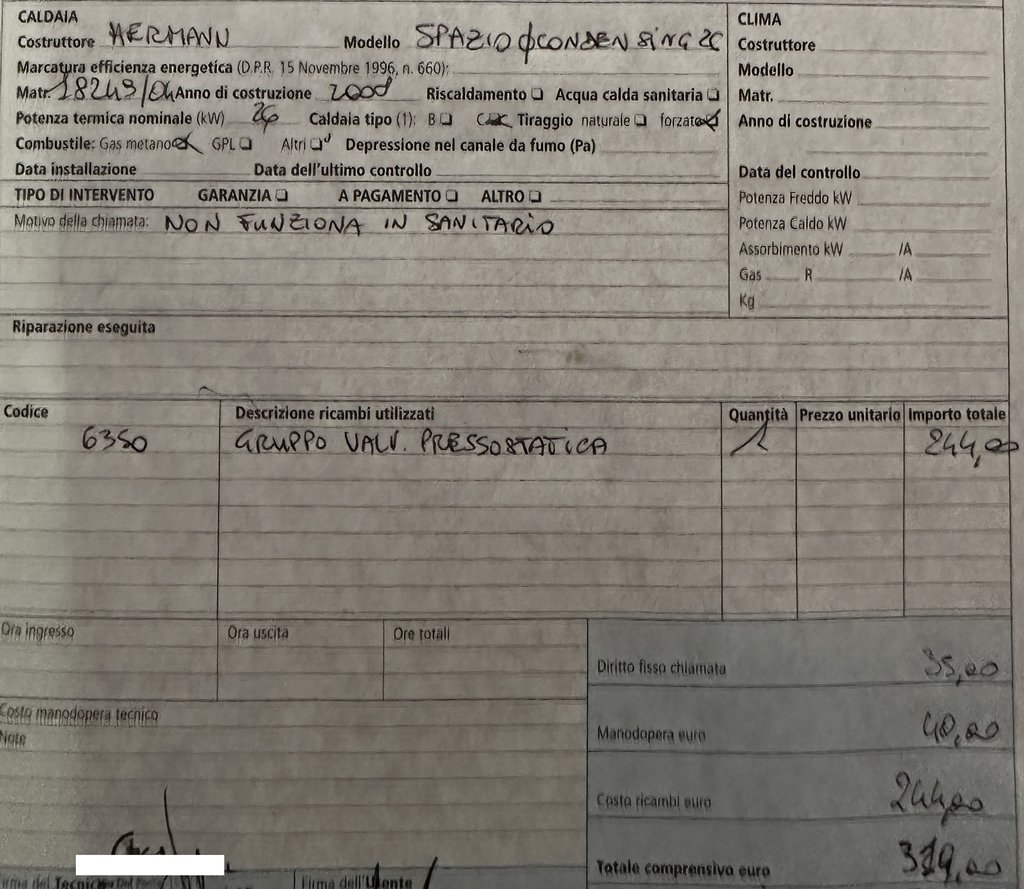 CALDAIA
Costruttore HERMANN Modello SPAZIO ϕ CONDENSING 2C
Marcatura efficienza energetica (D.P.R. 15 Novembre 1996, n. 660):
Matr. 18243/04 Anno di costruzione 2008 Riscaldamento ❏ Acqua calda sanitaria ❏
Potenza termica nominale (kW) 26 Caldaia tipo (1): B ❏ C Tiraggio naturale ❏ forzato
Combustile: Gas metano GPL ❏ Altri ❏ Depressione nel canale da fumo (Pa)
Data installazione Data dell'ultimo controllo
TIPO DI INTERVENTO GARANZIA ❏ A PAGAMENTO ❏ ALTRO ❏
Motivo della chiamata: NON FUNZIONA IN SANITARIO
CLIMA
Costruttore
Modello
Matr.
Anno di costruzione
Data del controllo
Potenza Freddo kW
Potenza Caldo kW
Assorbimento kW /A
Gas R /A
Kg
Riparazione eseguita
Codice Descrizione ricambi utilizzati Quantità Prezzo unitario Importo totale
6350 GRUPPO VALV. PRESSOSTATICA 1 244,00
Ora ingresso Ora uscita Ore totali
Costo manodopera tecnico
Note
Diritto fisso chiamata 35,00
Manodopera euro 40,00
Costo ricambi euro 244,00
Totale comprensivo euro 319,00
Firma del Tecnico Firma dell'Utente